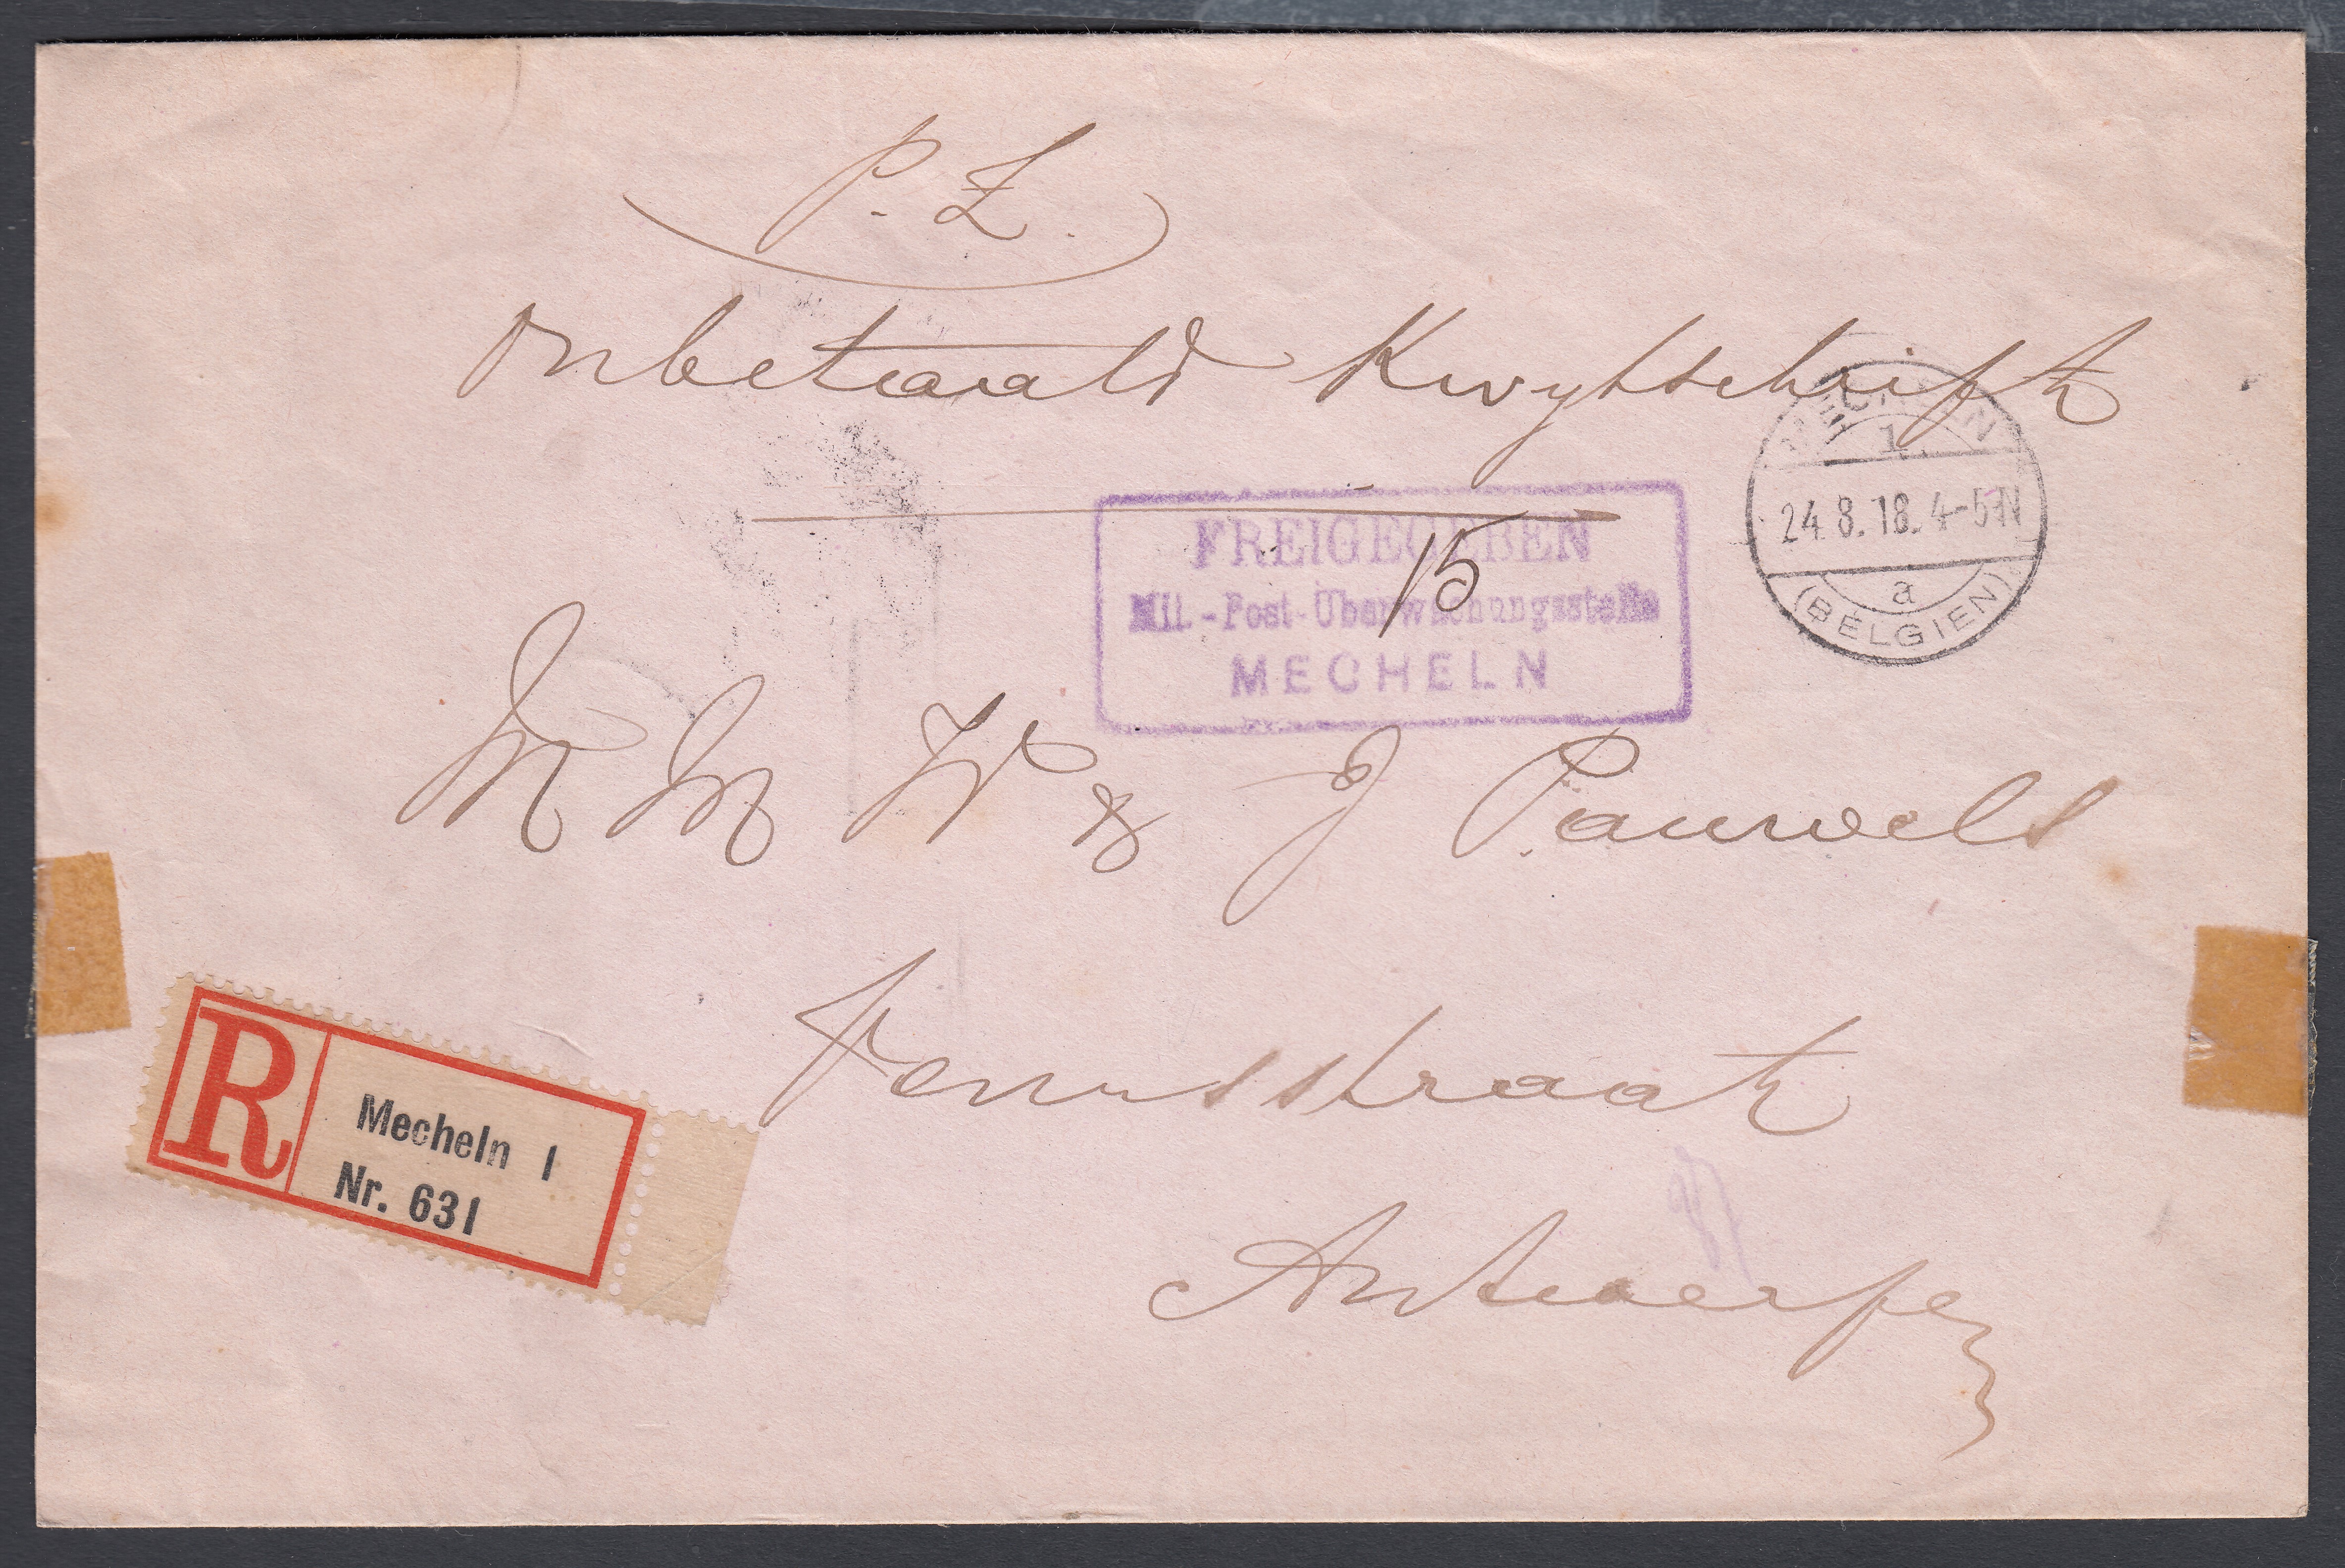 P.Z.
Onbetaald Kwytschrift
MECHELN
1.
24.8.18.4-5N
a
(BELGIEN)
FREIGEGEBEN
Mil.-Post-Überwachungsstelle
MECHELN
15
M M W & J Pauwels
Venusstraat
Antwerpen
R
Mecheln 1
Nr. 631